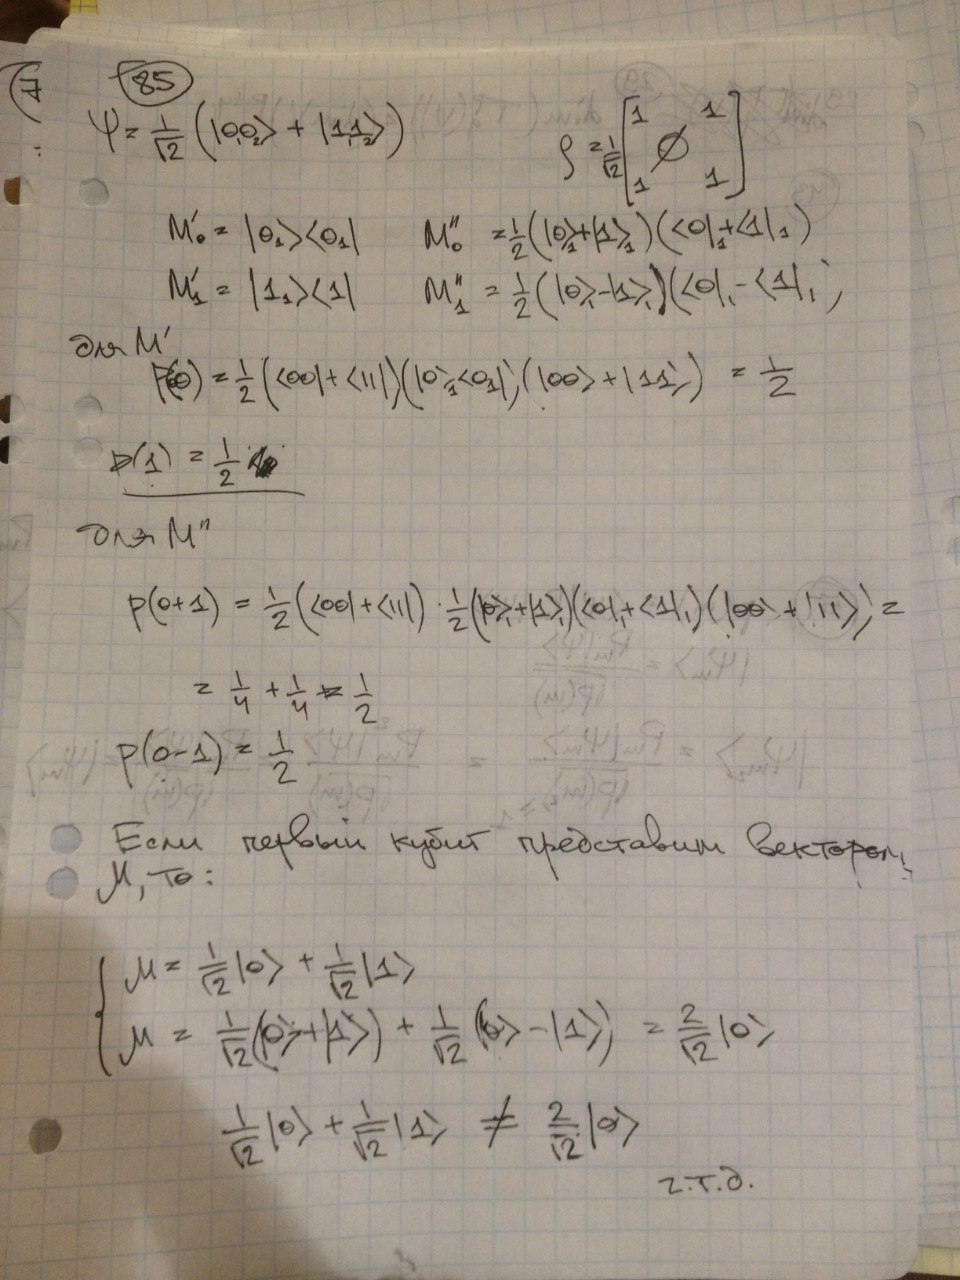 85
7
ψ = 1/√2 (|0₁0₂> + |1₁1₂>)
ρ = 1/√2 [1 1 ∅ 1 1]
M'₀ = |0₁><0₁| M''₀ = 1/2 (|0>₁+|1>₁)(<0|₁+<1|₁)
M'₁ = |1₁><1| M''₁ = 1/2 (|0>₁-|1>₁)(<0|₁-<1|₁)
для M'
p(0) = 1/2 (<00|+<11|)(|0>₁<0₁|)(|00> + |11>) = 1/2
p(1) = 1/2
для M''
p(0+1) = 1/2 (<00|+<11|) · 1/2 (|0>₁+|1>₁)(<0|₁+<1|₁)(|00> + |11>) =
= 1/4 + 1/4 = 1/2
p(0-1) = 1/2
Если первый кубит представим вектором
M, то:
M = 1/√2 |0> + 1/√2 |1>
M = 1/√2 (|0>+|1>) + 1/√2 (|0> - |1>) = 2/√2 |0>
1/√2 |0> + 1/√2 |1> ≠ 2/√2 |0>
ч.т.д.